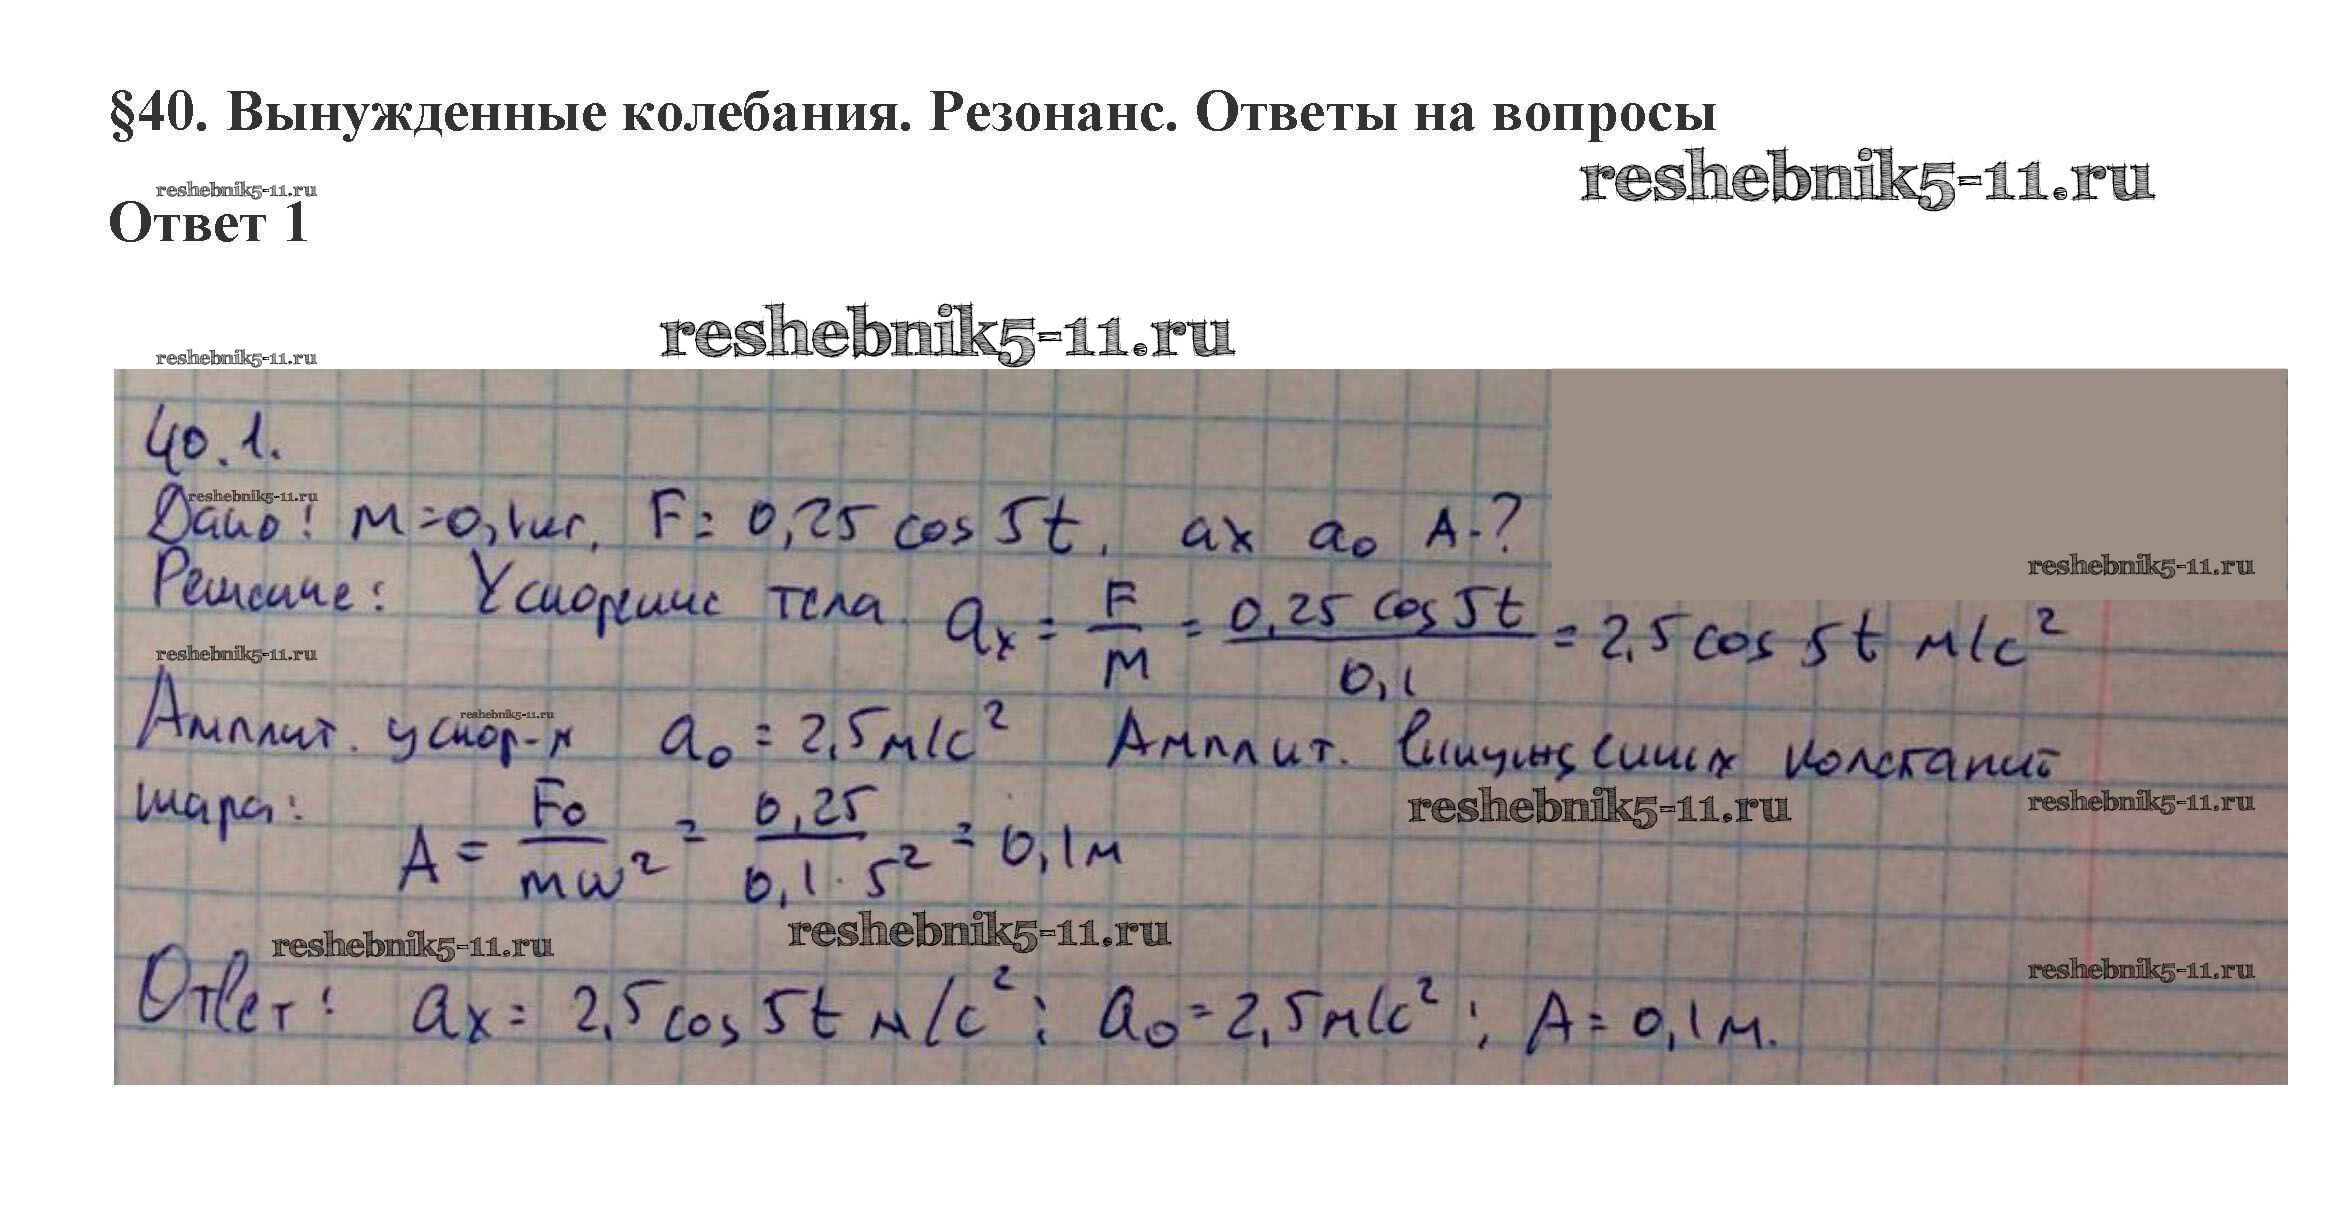 §40. Вынужденные колебания. Резонанс. Ответы на вопросы
reshebnik5-11.ru
reshebnik5-11.ru
Ответ 1
reshebnik5-11.ru
reshebnik5-11.ru
40.1.
reshebnik5-11.ru
Дано: m=0,1кг, F= 0,25 cos 5t, ax a₀ A-?
reshebnik5-11.ru
Решение: Ускорение тела aₓ = F/m = 0,25 cos 5t / 0,1 = 2,5 cos 5t м/с²
reshebnik5-11.ru
reshebnik5-11.ru
Амплит. ускор-я a₀ = 2,5м/с² Амплит. вынужденных колебаний
шара:
reshebnik5-11.ru
reshebnik5-11.ru
A = F₀/mω² = 0,25/0,1·5² = 0,1м
reshebnik5-11.ru
reshebnik5-11.ru
reshebnik5-11.ru
Ответ: aₓ = 2,5 cos 5t м/с²; a₀ = 2,5м/с²; A = 0,1м.